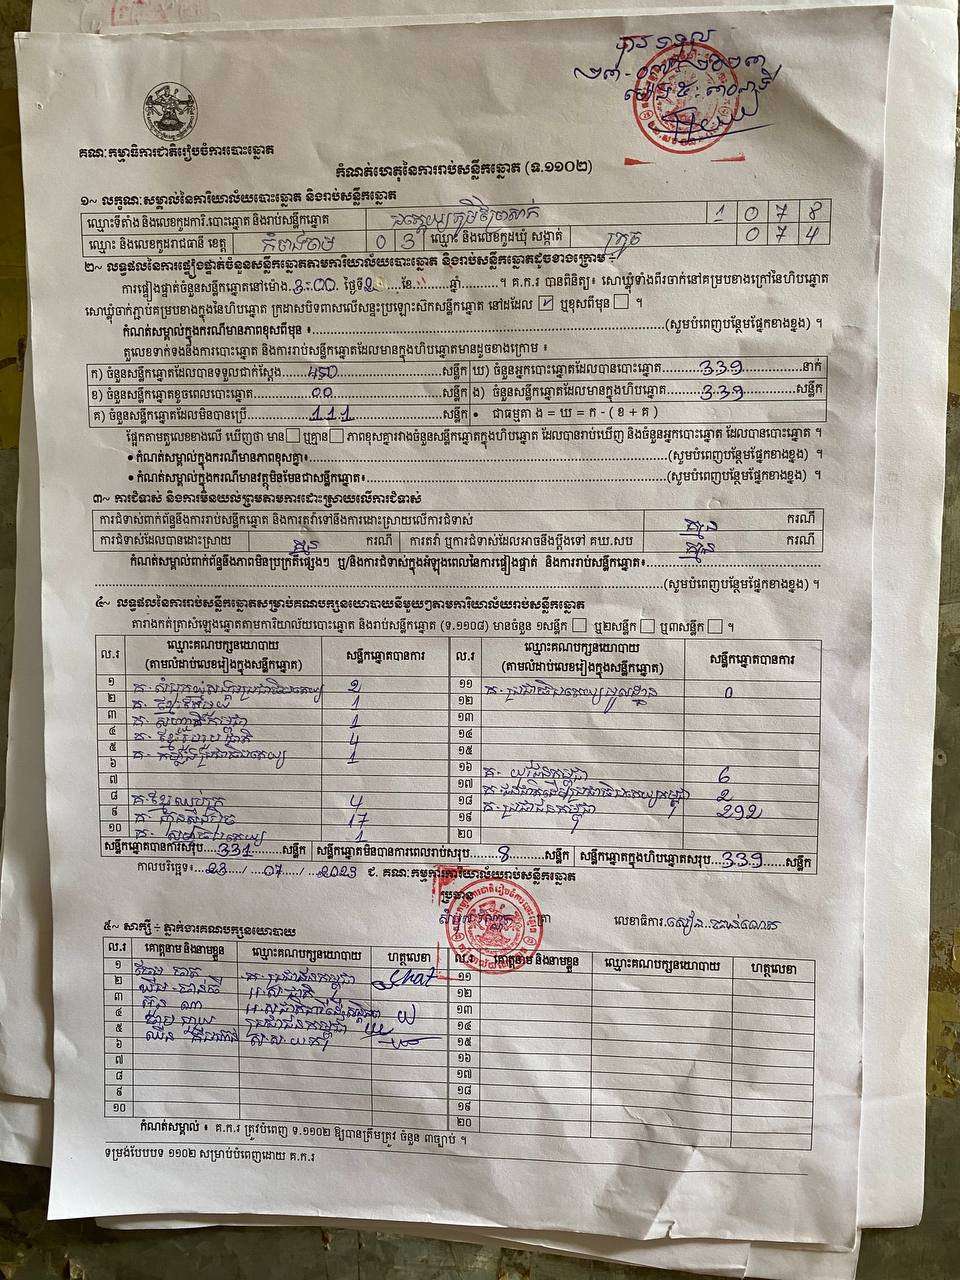 បានទទួល
២៣-០៧-២០២៣
គណៈកម្មាធិការជាតិរៀបចំការបោះឆ្នោត
កំណត់ហេតុនៃការរាប់សន្លឹកឆ្នោត (ទ.១១០២)
១~ លក្ខណៈសម្គាល់នៃការិយាល័យបោះឆ្នោត និងរាប់សន្លឹកឆ្នោត
ឈ្មោះទីតាំង និងលេខកូដការិ.បោះឆ្នោត និងរាប់សន្លឹកឆ្នោត 1 0 7 8
ឈ្មោះ និងលេខកូដរាជធានី ខេត្ត កំពង់ចាម 0 3 ឈ្មោះ និងលេខកូដឃុំ សង្កាត់ ក្រូច 0 7 4
២~ លទ្ធផលនៃការផ្ទៀងផ្ទាត់ចំនួនសន្លឹកឆ្នោតតាមការិយាល័យបោះឆ្នោត និងរាប់សន្លឹកឆ្នោតដូចខាងក្រោម ៖
ការផ្ទៀងផ្ទាត់ចំនួនសន្លឹកឆ្នោតនៅម៉ោង.3:00. ថ្ងៃទី ខែ ឆ្នាំ ។ គ.ក.រ បានពិនិត្យ៖ សោឃ្លុំទាំងពីរចាក់នៅគម្របខាងក្រៅនៃហិបឆ្នោត
សោឃ្លុំចាក់ភ្ជាប់គម្របខាងក្នុងនៃហិបឆ្នោត ក្រដាសបិទពាសលើសន្ទះប្រឡោះសិកសន្លឹកឆ្នោត នៅដដែល ☑ ឬខុសពីមុន ☐ ។
កំណត់សម្គាល់ក្នុងករណីមានភាពខុសពីមុន ៖ (សូមបំពេញបន្ថែមផ្នែកខាងខ្នង) ។
តួលេខទាក់ទងនឹងការបោះឆ្នោត និងការរាប់សន្លឹកឆ្នោតដែលមានក្នុងហិបឆ្នោតមានដូចខាងក្រោម ៖
ក) ចំនួនសន្លឹកឆ្នោតដែលបានទទួលជាក់ស្តែង 450 សន្លឹក ឃ) ចំនួនអ្នកបោះឆ្នោតដែលបានបោះឆ្នោត 339 នាក់
ខ) ចំនួនសន្លឹកឆ្នោតខូចពេលបោះឆ្នោត 00 សន្លឹក ង) ចំនួនសន្លឹកឆ្នោតដែលមានក្នុងហិបឆ្នោត 339 សន្លឹក
គ) ចំនួនសន្លឹកឆ្នោតដែលមិនបានប្រើ 111 សន្លឹក • ជាធម្មតា ង = ឃ = ក - ( ខ + គ )
ផ្អែកតាមតួលេខខាងលើ ឃើញថា មាន ☐ ឬគ្មាន ☐ ភាពខុសគ្នារវាងចំនួនសន្លឹកឆ្នោតក្នុងហិបឆ្នោត ដែលបានរាប់ឃើញ និងចំនួនអ្នកបោះឆ្នោត ដែលបានបោះឆ្នោត ។
• កំណត់សម្គាល់ក្នុងករណីមានភាពខុសគ្នា៖ (សូមបំពេញបន្ថែមផ្នែកខាងខ្នង) ។
• កំណត់សម្គាល់ក្នុងករណីមានវត្ថុមិនមែនជាសន្លឹកឆ្នោត៖ (សូមបំពេញបន្ថែមផ្នែកខាងខ្នង) ។
៣~ ការជំទាស់ និងការមិនយល់ព្រមតាមការដោះស្រាយលើការជំទាស់
ការជំទាស់ពាក់ព័ន្ធនឹងការរាប់សន្លឹកឆ្នោត និងការតវ៉ាទៅនឹងការដោះស្រាយលើការជំទាស់ គ្មាន ករណី
ការជំទាស់ដែលបានដោះស្រាយ គ្មាន ករណី ការតវ៉ា ឬការជំទាស់ដែលអាចនឹងប្តឹងទៅ គឃ.សប គ្មាន ករណី
កំណត់សម្គាល់ពាក់ព័ន្ធនឹងភាពមិនប្រក្រតីផ្សេងៗ ឬ/និងការជំទាស់ក្នុងអំឡុងពេលនៃការផ្ទៀងផ្ទាត់ និងការរាប់សន្លឹកឆ្នោត៖
(សូមបំពេញបន្ថែមផ្នែកខាងខ្នង) ។
៤~ លទ្ធផលនៃការរាប់សន្លឹកឆ្នោតសម្រាប់គណបក្សនយោបាយនីមួយៗតាមការិយាល័យរាប់សន្លឹកឆ្នោត
តារាងកត់ត្រាសំឡេងឆ្នោតតាមការិយាល័យបោះឆ្នោត និងរាប់សន្លឹកឆ្នោត (ទ.១១០៨) មានចំនួន ១សន្លឹក ☐ ឬ២សន្លឹក ☐ ឬ៣សន្លឹក ☐ ។
ល.រ ឈ្មោះគណបក្សនយោបាយ (តាមលំដាប់លេខរៀងក្នុងសន្លឹកឆ្នោត) សន្លឹកឆ្នោតបានការ ល.រ ឈ្មោះគណបក្សនយោបាយ (តាមលំដាប់លេខរៀងក្នុងសន្លឹកឆ្នោត) សន្លឹកឆ្នោតបានការ
១ គ. សំបុកឃ្មុំសង្គមប្រជាធិបតេយ្យ 2 ១១ គ. ប្រជាធិបតេយ្យមូលដ្ឋាន 0
២ គ. ខ្មែរតែមួយ 1 ១២
៣ 1 ១៣
៤ គ. ខ្មែររួបរួមជាតិ 4 ១៤
៥ គ. កម្លាំងប្រជាធិបតេយ្យ 1 ១៥
៦ ១៦ គ. យុវជនកម្ពុជា 6
៧ ១៧ 2
៨ 4 ១៨ គ. ប្រជាជនកម្ពុជា 292
៩ គ. ហ្វ៊ុនស៊ិនប៉ិច 17 ១៩
១០ 1 ២០
សន្លឹកឆ្នោតបានការសរុប 331 សន្លឹក សន្លឹកឆ្នោតមិនបានការពេលរាប់សរុប 8 សន្លឹក សន្លឹកឆ្នោតក្នុងហិបឆ្នោតសរុប 339 សន្លឹក
កាលបរិច្ឆេទ៖ 23 / 07 / 2023 ជ. គណៈកម្មការការិយាល័យរាប់សន្លឹកឆ្នោត
ប្រធាន
ត្រា លេខាធិការ
៥~ សាក្សី ÷ ភ្នាក់ងារគណបក្សនយោបាយ
ល.រ គោត្តនាម និងនាមខ្លួន ឈ្មោះគណបក្សនយោបាយ ហត្ថលេខា ល.រ គោត្តនាម និងនាមខ្លួន ឈ្មោះគណបក្សនយោបាយ ហត្ថលេខា
១ គ. ប្រជាជនកម្ពុជា ១១
២ ១២
៣ ១៣
៤ ១៤
៥ ប្រជាជនកម្ពុជា ១៥
៦ ១៦
៧ ១៧
៨ ១៨
៩ ១៩
១០ ២០
កំណត់សម្គាល់ ៖ គ.ក.រ ត្រូវបំពេញ ទ.១១០២ ឱ្យបានត្រឹមត្រូវ ចំនួន ៣ច្បាប់ ។
ទម្រង់បែបបទ ១១០២ សម្រាប់បំពេញដោយ គ.ក.រ